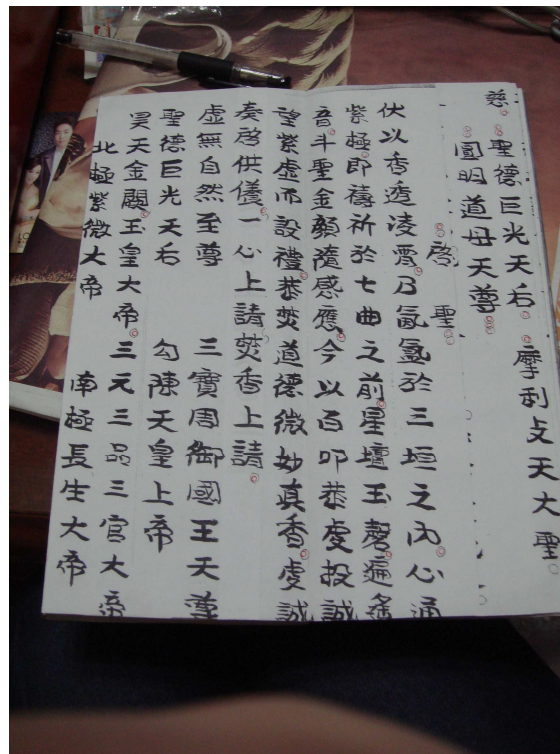 慈 聖德巨光天后 摩利攴天大聖
圓明道母天尊
啓聖
伏以香透凌霄乃氤氳於三垣之內心通
紫極即禱祈於七曲之前星壇玉磬遍遙
音斗聖金顏隨感應今以百叩恭虔投誠
望紫虛而設禮恭焚道德微妙真香虔誠
奏啓供儀一心上請焚香上請
虛無自然至尊 三寶周御國王天尊
聖德巨光天后 勾陳天皇上帝
昊天金闕玉皇大帝 三元三品三官大帝
北極紫微大帝 南極長生大帝